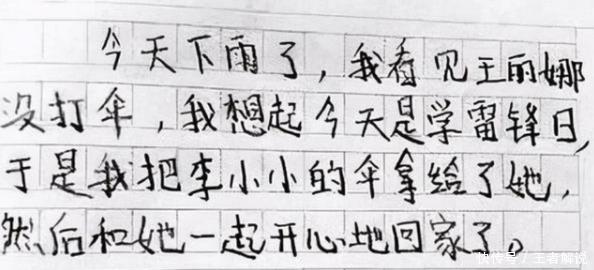 今天下雨了，我看见王丽娜
没打伞，我想起今天是学雷锋日，
于是我把李小小的伞拿给了她，
然后和她一起开心地回家了。
快传号／王者解说